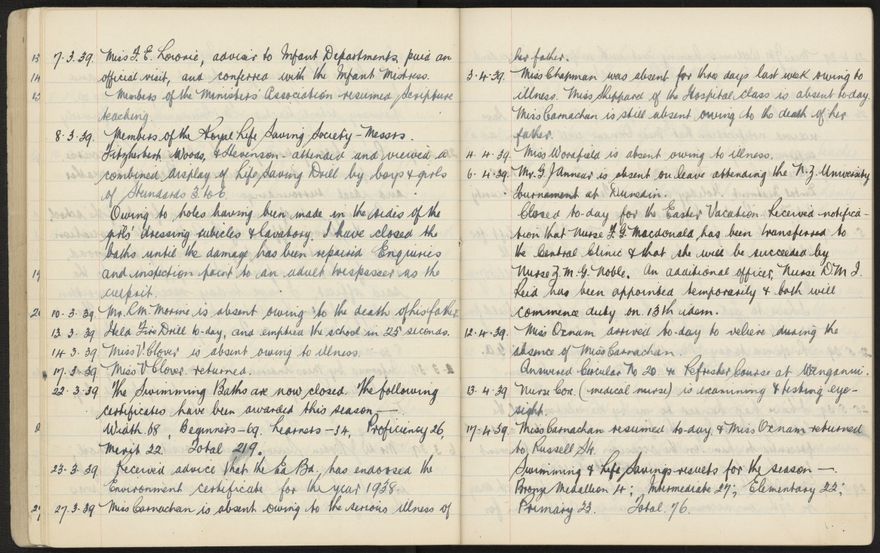 7.3.39. Miss F. E. , advisor to Infant Departments, paid an
official visit, and conferred with the Infant Mistress.
Members of the Ministers' Association resumed Scripture
teaching.
8.3.39. Members of the Royal Life Saving Society - Messrs.
Fitzherbert, Woods, & Stevenson - attended and viewed a
combined display of Life Saving Drill by boys & girls
of Standards 3 to 6.
Owing to holes having been made in the sides of the
girls' dressing cubicles & lavatory, I have closed the
baths until the damage has been repaired. Enquiries
and inspection point to an adult trespasser as the
culprit.
10.3.39. Mr. R.M. is absent owing to the death of his father.
13.3.39 Held Fire Drill to-day, and emptied the school in 25 seconds.
14.3.39 Miss V. Clover is absent owing to illness.
17.3.39. Miss V Clover returned.
22.3.39 The Swimming Baths are now closed. The following
certificates have been awarded this season, -
Width 68, Beginners - 69, Learners - 34, Proficiency 26,
Merit 22. Total 219.
23.3.39 Received advice that the Ed Bd. has endorsed the
Environment certificate for the year 1938
27.3.39 Miss Carnachan is absent owing to the serious illness of
her father.
3.4.39. Miss Chapman was absent for three days last week owing to
illness. Miss Sheppard of the Hospital class is absent to-day.
Miss Carnachan is still absent owing to the death of her
father.
4.4.39. Miss is absent owing to illness.
6.4.39. Mr. G. J is absent, on leave attending the N.Z University
Tournament at Dunedin.
Closed to-day for the Easter Vacation. Received notifica-
tion that Nurse F. G. Macdonald has been transferred to
the Central Clinic & that she will be succeeded by
Nurse Z. M. G. Noble. An additional officer, Nurse D M. J.
Reid has been appointed temporarily & both will
commence duty on 13th idem.
12.4.39. Miss Oxnam arrived to-day to relieve during the
absence of Miss Carnachan.
Answered Circular No 20. re Refresher Course at Wanganui.
13.4.39 Nurse Cox. (medical nurse) is examining & testing eye-
sight.
17.4.39. Miss Carnachan resumed to-day & Miss Oxnam returned
to Russell St.
Swimming & Life Savings results for the season -.
Bronze Medallion 4; Intermediate 27; Elementary 22;
Primary 23. Total. 76.